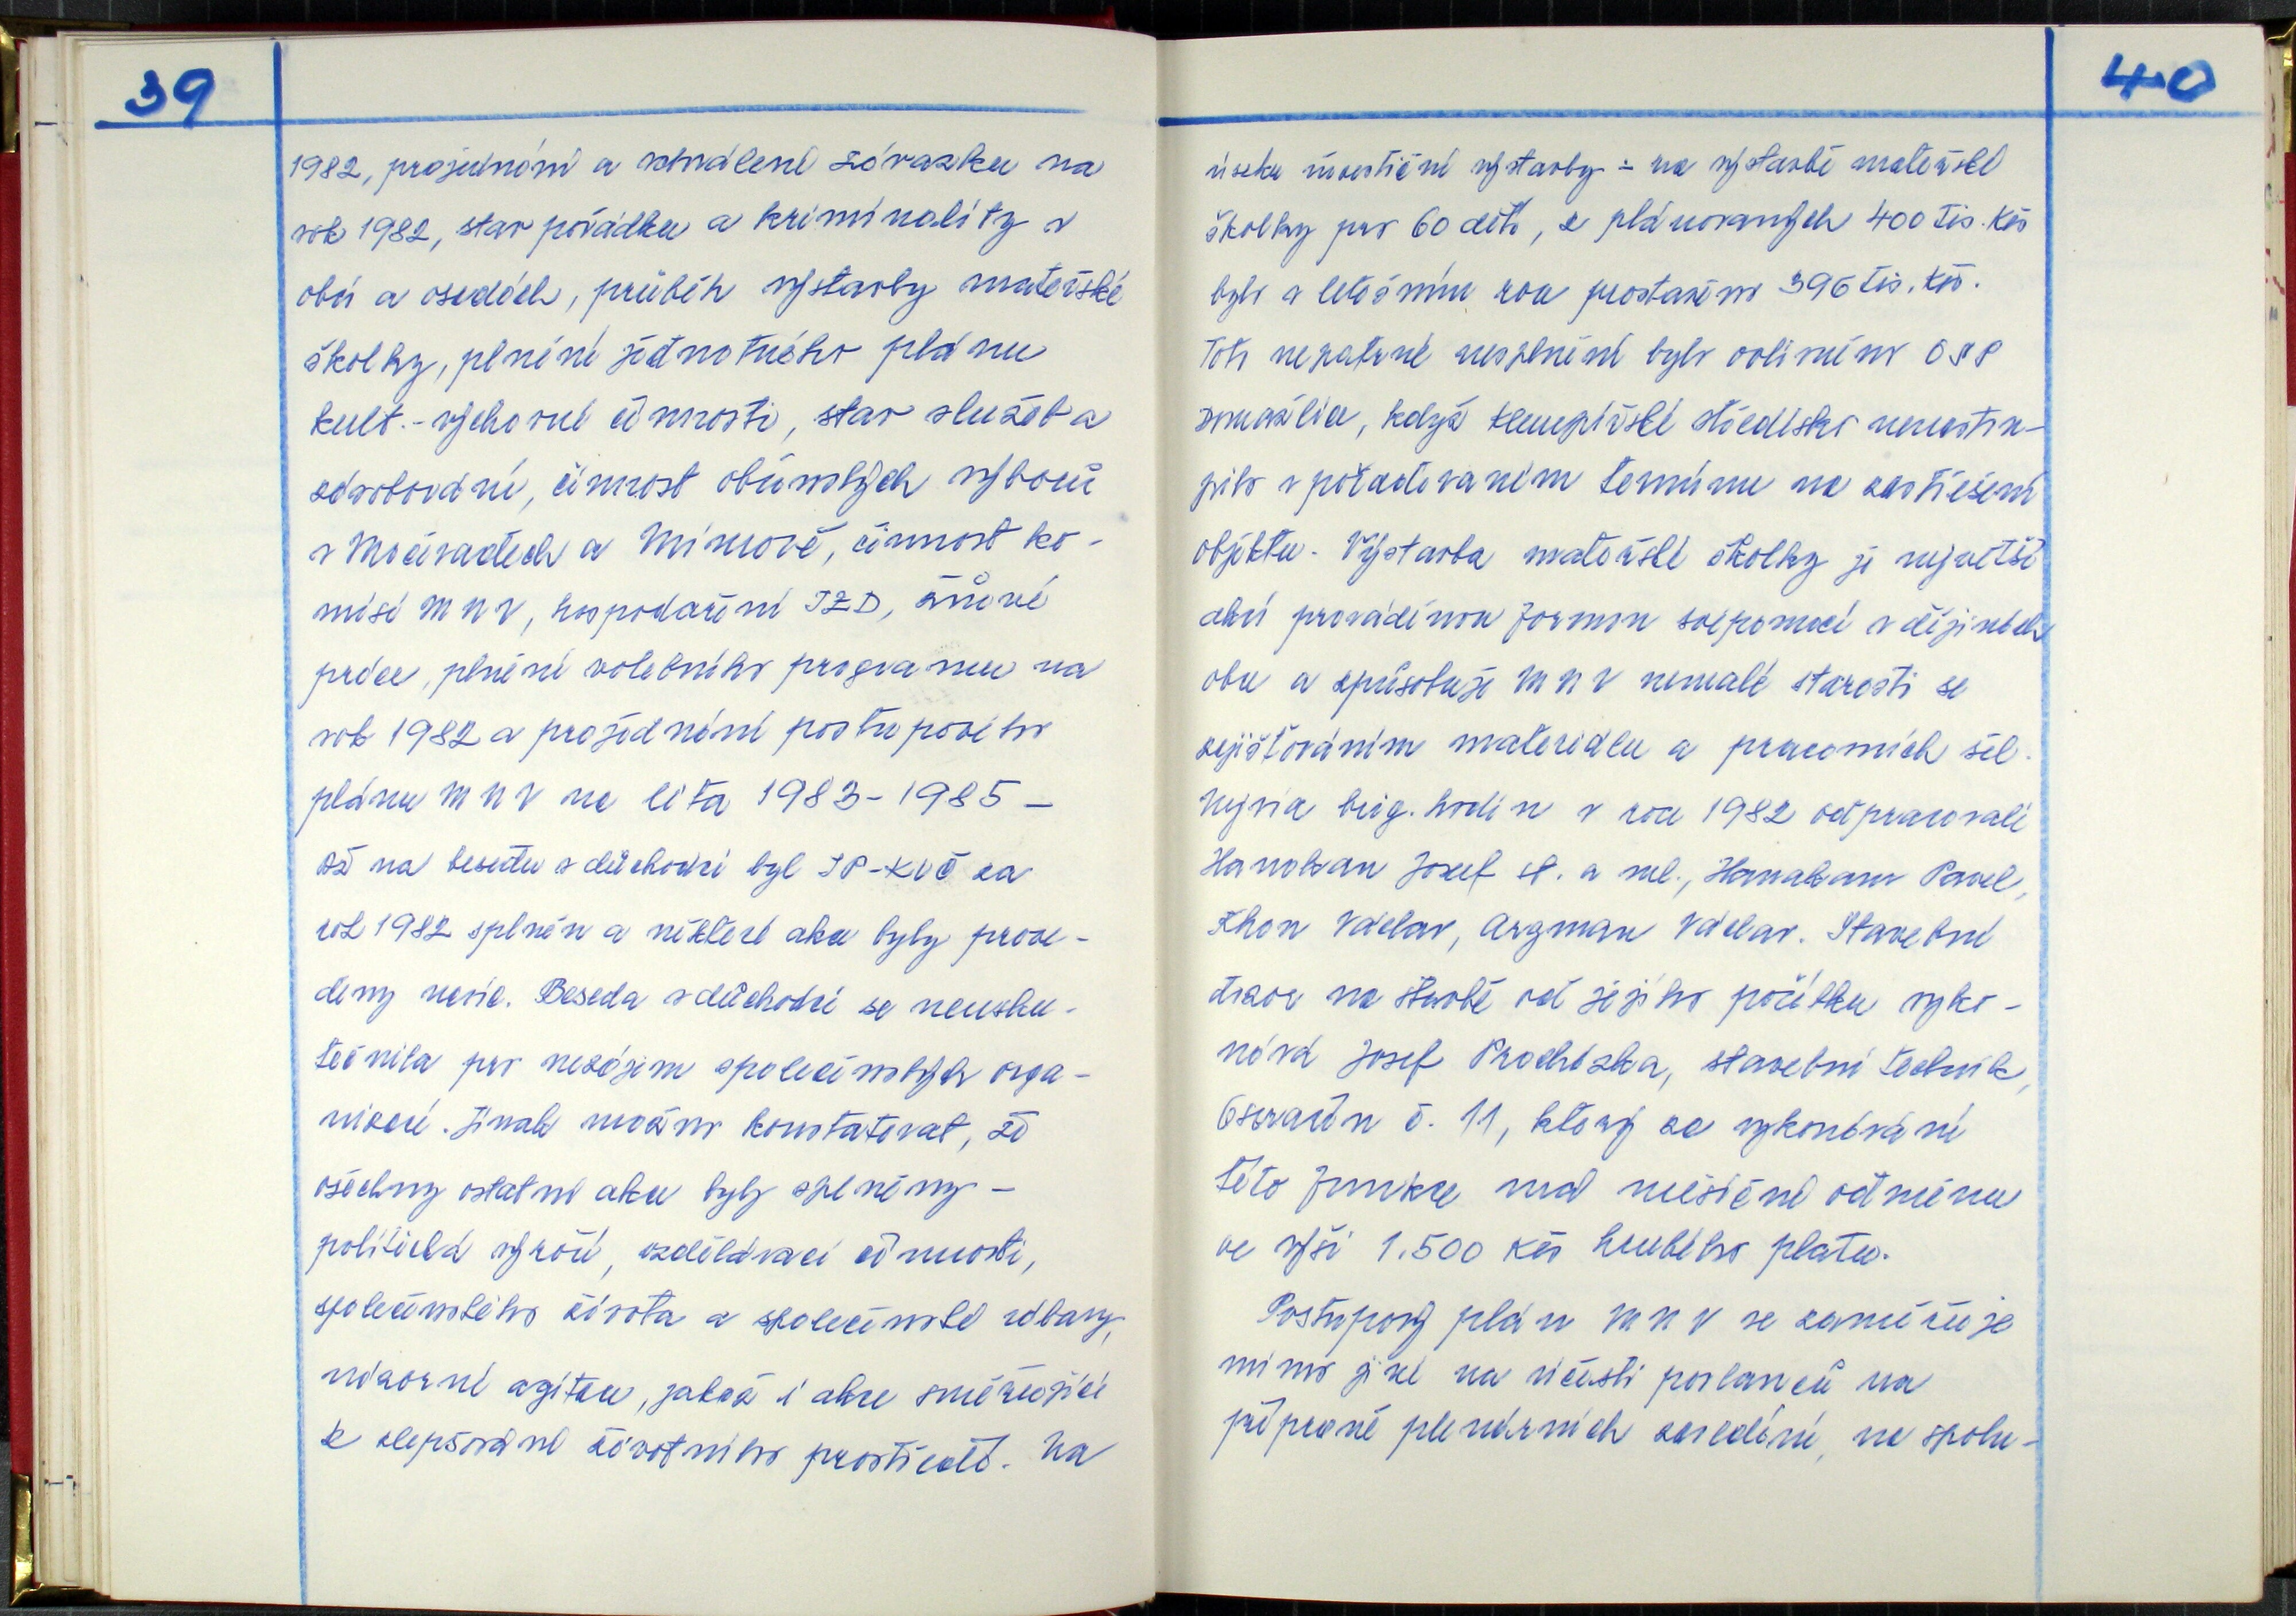 39
1982, projednání a schválení závazku na
rok 1982, stav pořádku a kriminality v
obci a osadách, průběh výstavby mateřské
školky, plnění jednotného plánu
kult.-výchovné činnosti, stav služeb a
zásobování, činnost občanských výborů
v Močovadech a Mimově, činnost ko-
misí MNV, hospodaření JZD, žňové
práce, plnění volebního programu na
rok 1982 a projednání postupového
plánu MNV na léta 1983-1985 -
Až na besedu s důchodci byl JP-KVČ za
rok 1982 splněn a některé akce byly prove-
deny navíc. Beseda s důchodci se neusku-
tečnila pro nezájem společenských orga-
nizací. Jinak možno konstatovat, že
všechny ostatní akce byly splněny -
politická výročí, vzdělávací činnosti,
společenského života a společenské zábavy,
názorné agitace, jakož i akce směřující
k zlepšování životního prostředí. Na
40
úseku investiční výstavby - na výstavbě mateřské
školky pro 60 dětí, z plánovaných 400 tis. Kčs
bylo v letošním roce prostavěno 396 tis. Kčs.
Toto nepatrné nesplnění bylo ovlivněno OSP
když klempířské středisko nenastou-
pilo v požadovaném termínu na zastřešení
objektu. Výstavba mateřské školky je největší
akcí prováděnou formou svépomocí v dějinách
obce a způsobuje MNV nemalé starosti se
zajišťováním materiálu a pracovních sil.
Nejvíce brig. hodin v roce 1982 odpracovali
Josef st. a ml., Pavel,
Khon Václav, Argman Václav. Stavební
dozor na stavbě od jejího počátku vyko-
nává Josef Procházka, stavební technik,
Osvračín č. 11, který za vykonávání
této funkce má měsíční odměnu
ve výši 1.500 Kčs hrubého platu.
Postupový plán MNV se zaměřuje
mimo jiné na účasti poslanců na
přípravě plenárních zasedání, na spolu-